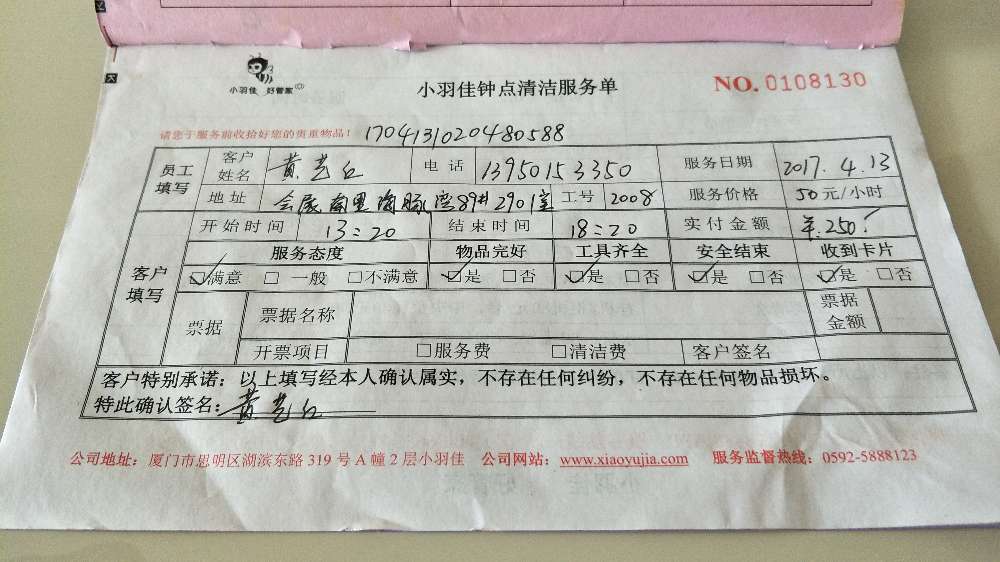 小羽佳 好管家
小羽佳钟点清洁服务单
NO. 0108130
请您于服务前收拾好您的贵重物品！ 1704131020480588
员工填写 客户姓名 黄艺红 电话 13950153350 服务日期 2017.4.13
地址 会展南里海豚湾89#2901室 工号 2008 服务价格 50元/小时
客户填写 开始时间 13:20 结束时间 18:20 实付金额 ¥.250.
服务态度 物品完好 工具齐全 安全结束 收到卡片
☑满意 □一般 □不满意 ☑是 □否 ☑是 □否 ☑是 □否 ☑是 □否
票据 票据名称 票据金额
开票项目 □服务费 □清洁费 客户签名
客户特别承诺：以上填写经本人确认属实，不存在任何纠纷，不存在任何物品损坏。
特此确认签名：黄艺红
公司地址：厦门市思明区湖滨东路 319 号 A 幢 2 层小羽佳 公司网站：www.xiaoyujia.com 服务监督热线：0592-5888123